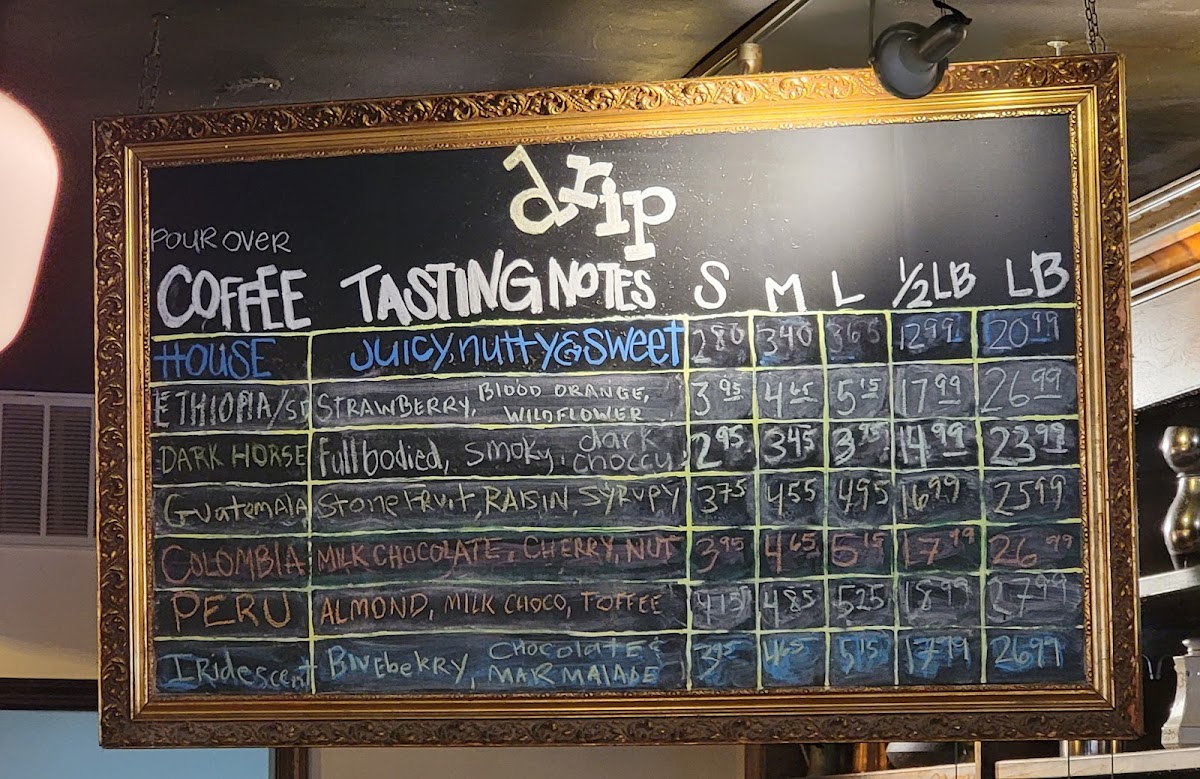 drip
POUR OVER
COFFEE TASTING NOTES S M L 1/2 LB LB
HOUSE JUICY, nutty & sweet 2.80 3.40 3.65 12.99 20.99
ETHIOPIA/SD STRAWBERRY, BLOOD ORANGE, WILDFLOWER 3.95 4.65 5.15 17.99 26.99
DARK HORSE Full bodied, smoky, dark choccy 2.95 3.45 3.75 14.99 23.99
Guatemala Stone Fruit, RAISIN, SYRUPY 3.75 4.55 4.95 16.99 25.99
COLOMBIA MILK CHOCOLATE, CHERRY, NUT 3.95 4.65 5.15 17.99 26.99
PERU ALMOND, MILK CHOCO, TOFFEE 4.15 4.85 5.25 18.99 27.99
Iridescent Blueberry, CHOCOLATE & MARMALADE 3.95 4.65 5.15 17.99 26.99